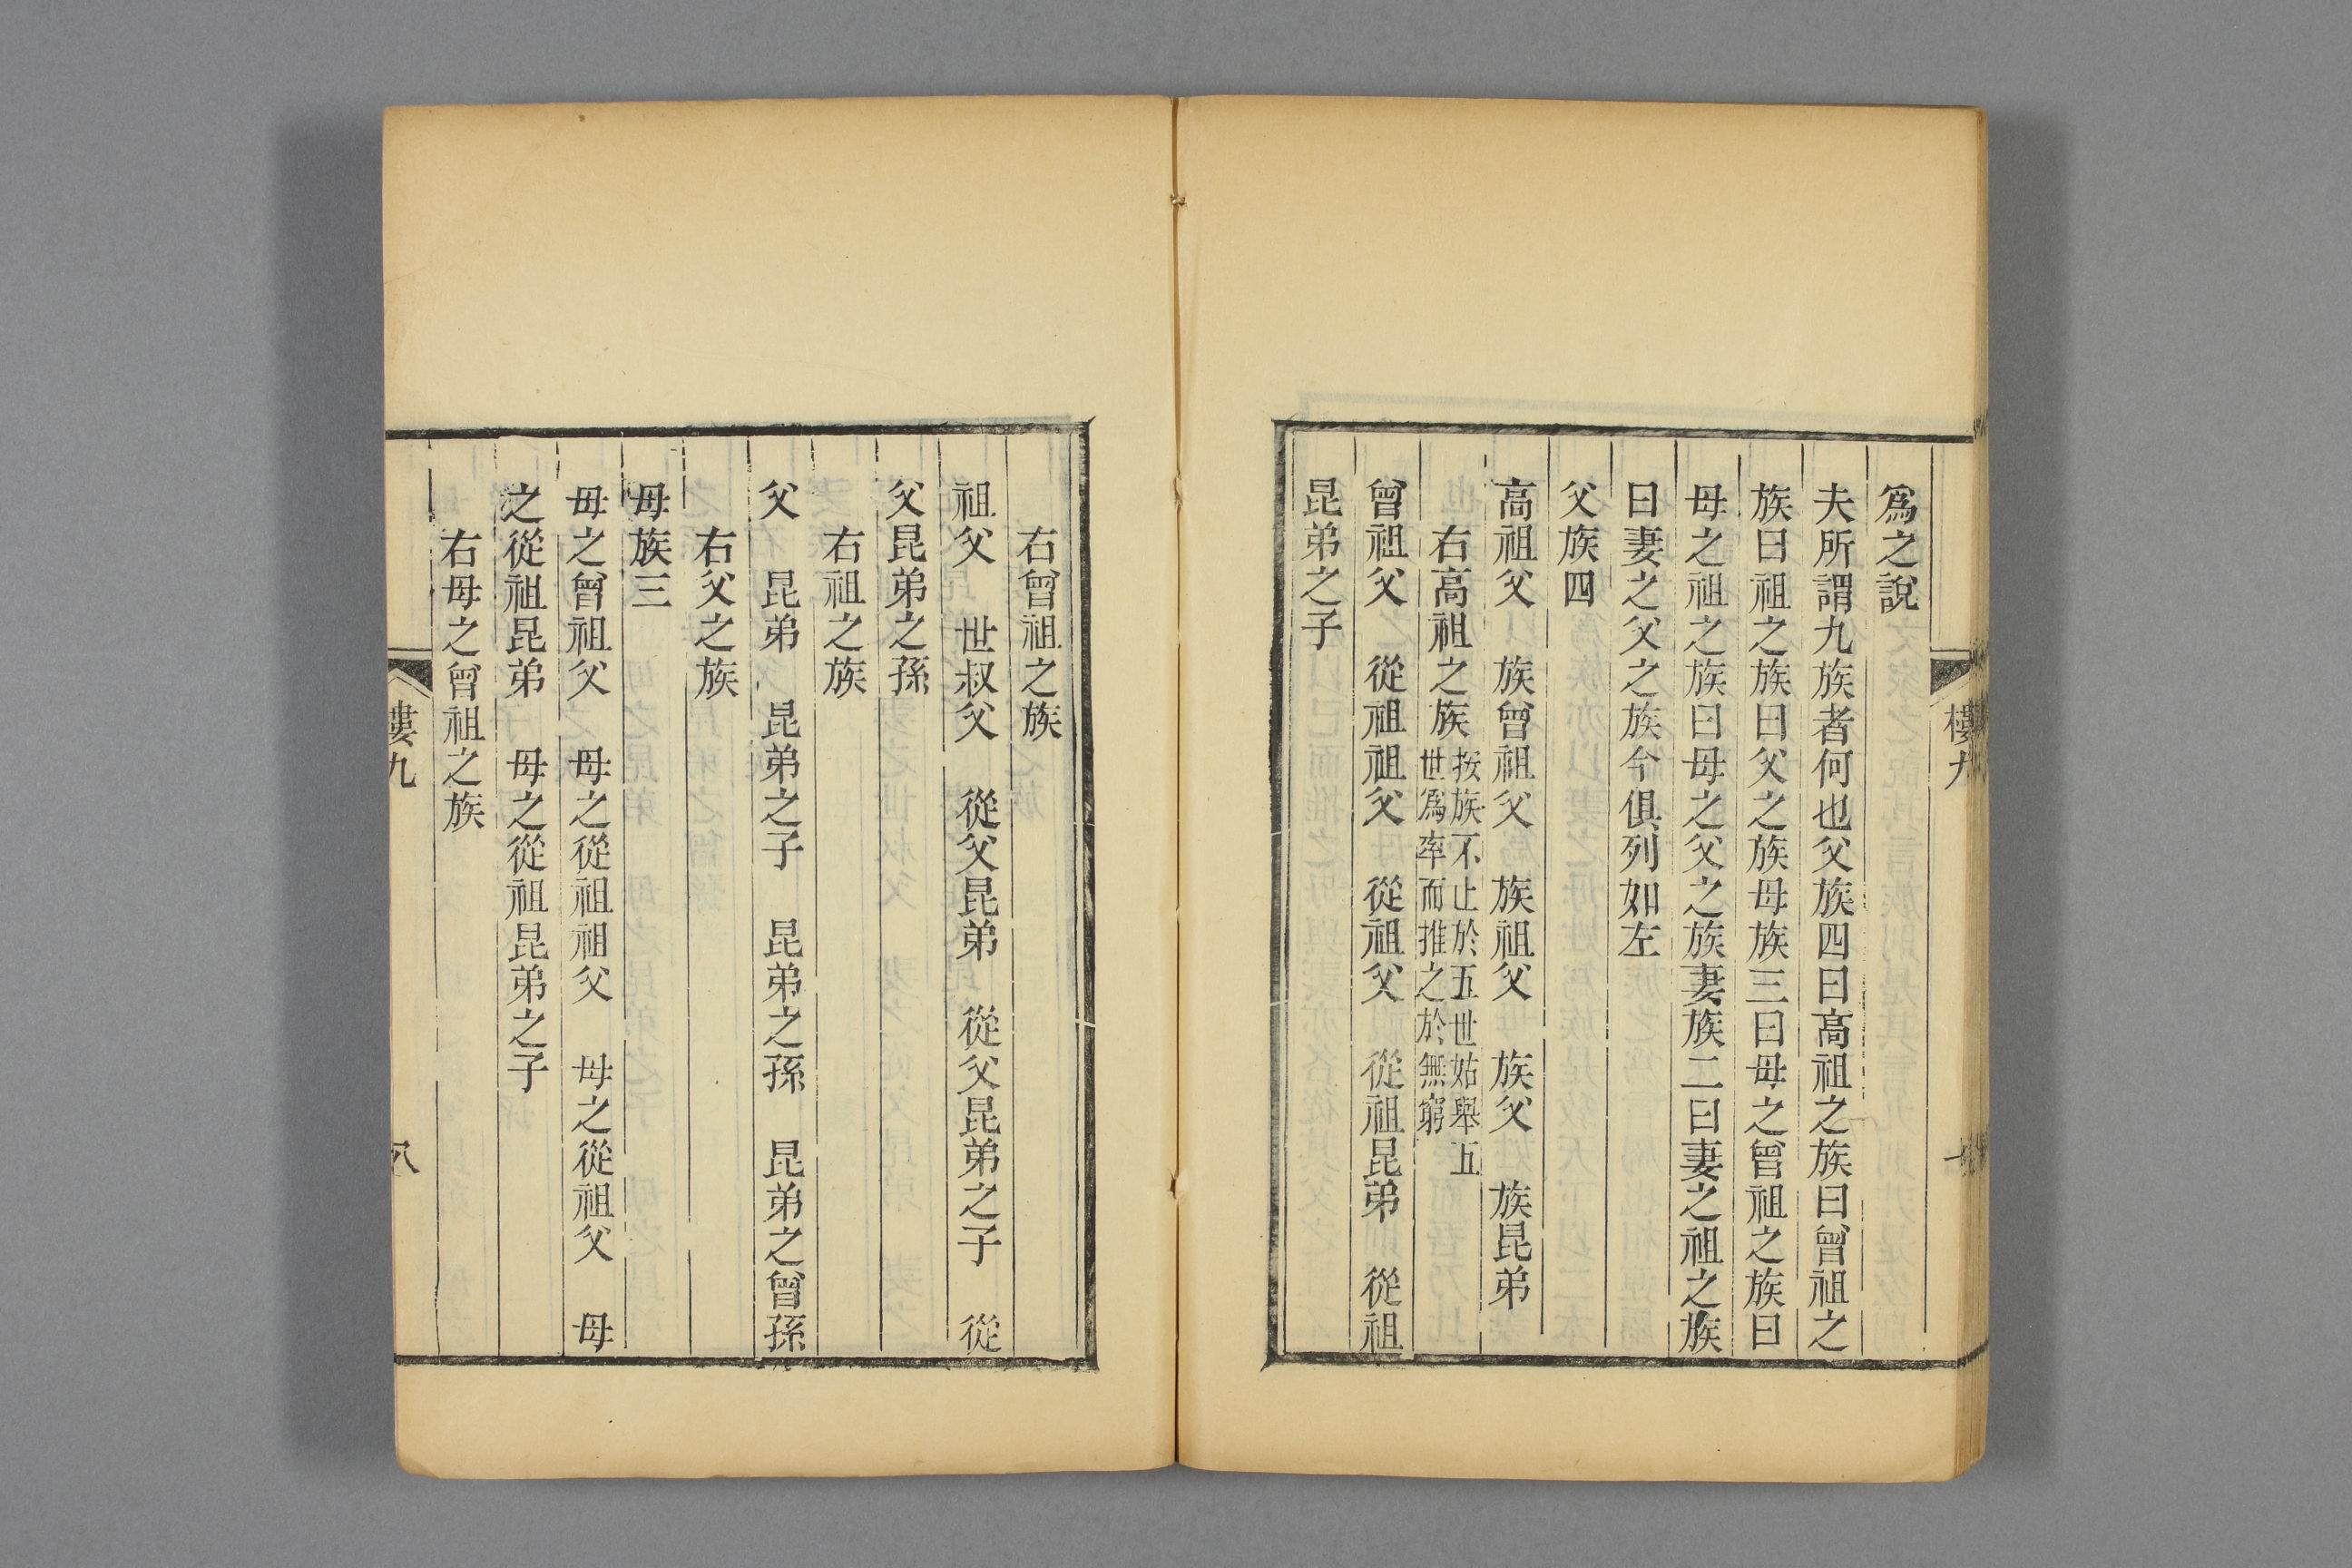 爲之說
夫所謂九族者何也父族四曰高祖之族曰曾祖之
族曰祖之族曰父之族母族三曰母之曾祖之族曰
母之祖之族曰母之父之族妻族二曰妻之祖之族
曰妻之父之族今俱列如左
父族四
高祖父　族曾祖父　族祖父　族父　族昆弟
右高祖之族按族不止於五世姑舉五
世爲率而推之於無窮
曾祖父　從祖祖父　從祖父　從祖昆弟　從祖
昆弟之子
右曾祖之族
祖父　世叔父　從父昆弟　從父昆弟之子　從
父昆弟之孫
右祖之族
父　昆弟　昆弟之子　昆弟之孫　昆弟之曾孫
右父之族
母族三
母之曾祖父　母之從祖祖父　母之從祖父　母
之從祖昆弟　母之從祖昆弟之子
右母之曾祖之族
樓九
八